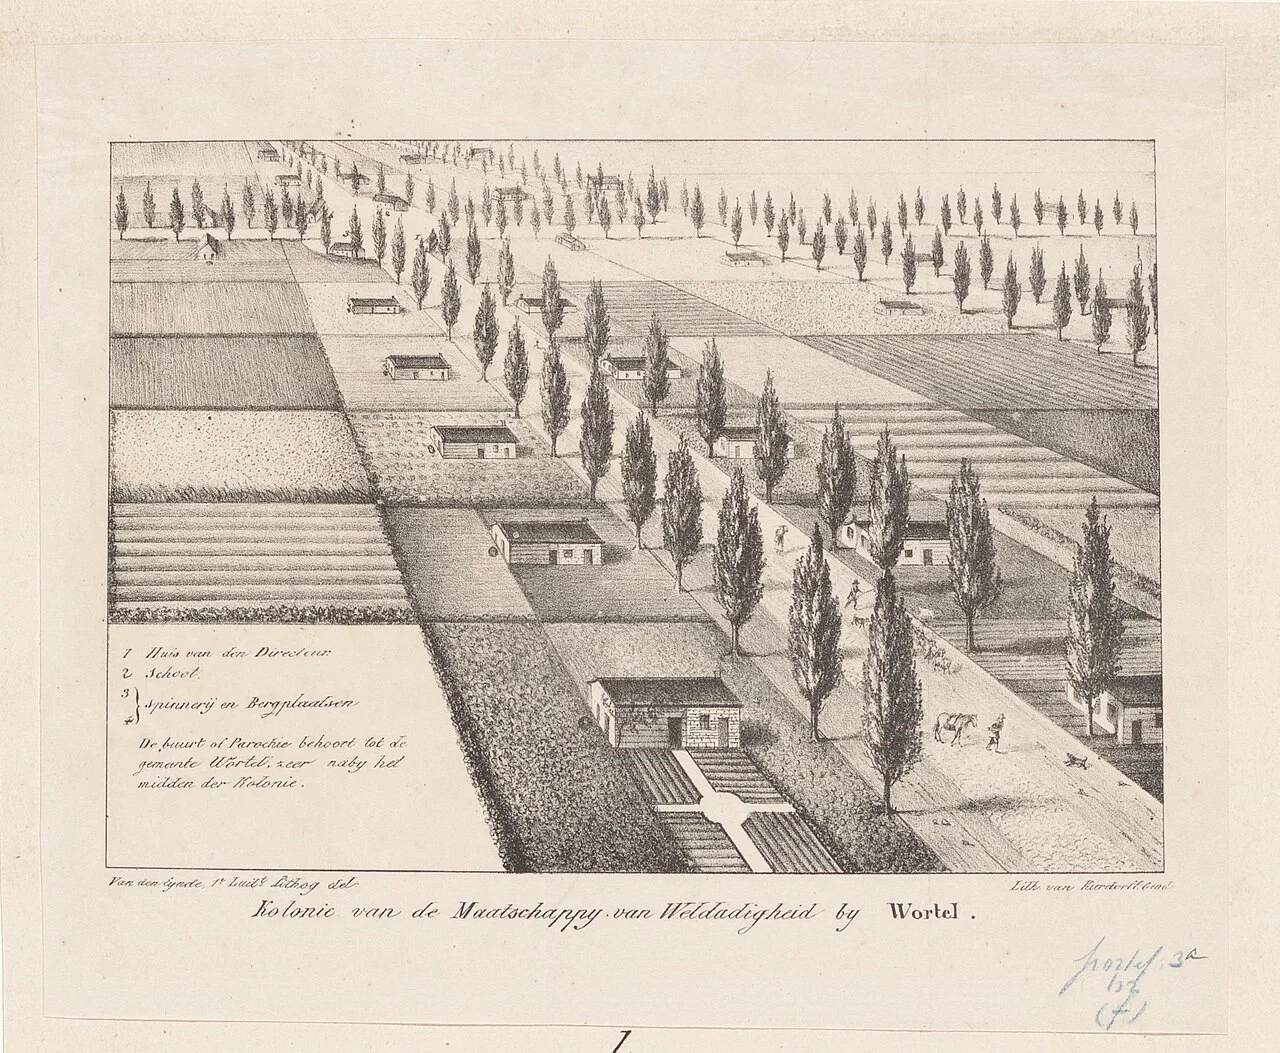 1 Huis van den Directeur.
2 School.
3
4 } Spinnerij en Bergplaatsen
De buurt of Parochie behoort tot de
gemeente Wortel, zeer naby het
midden der Kolonie.
Van den Eynde, 1e Luitt Lithog del
Lith. van Gend
Kolonie van de Maatschappy van Weldadigheid by Wortel.
3a
(f)
1.